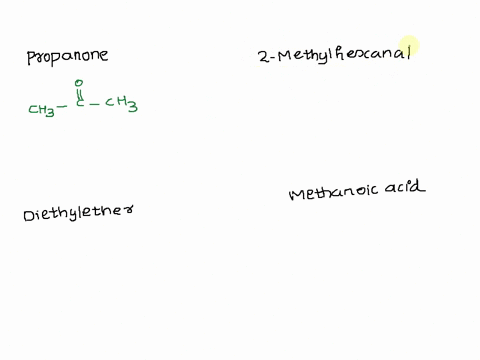 Propanone
2-Methylhexcanal
O
||
CH3 - C - CH3
Diethylether
Methanoic acid